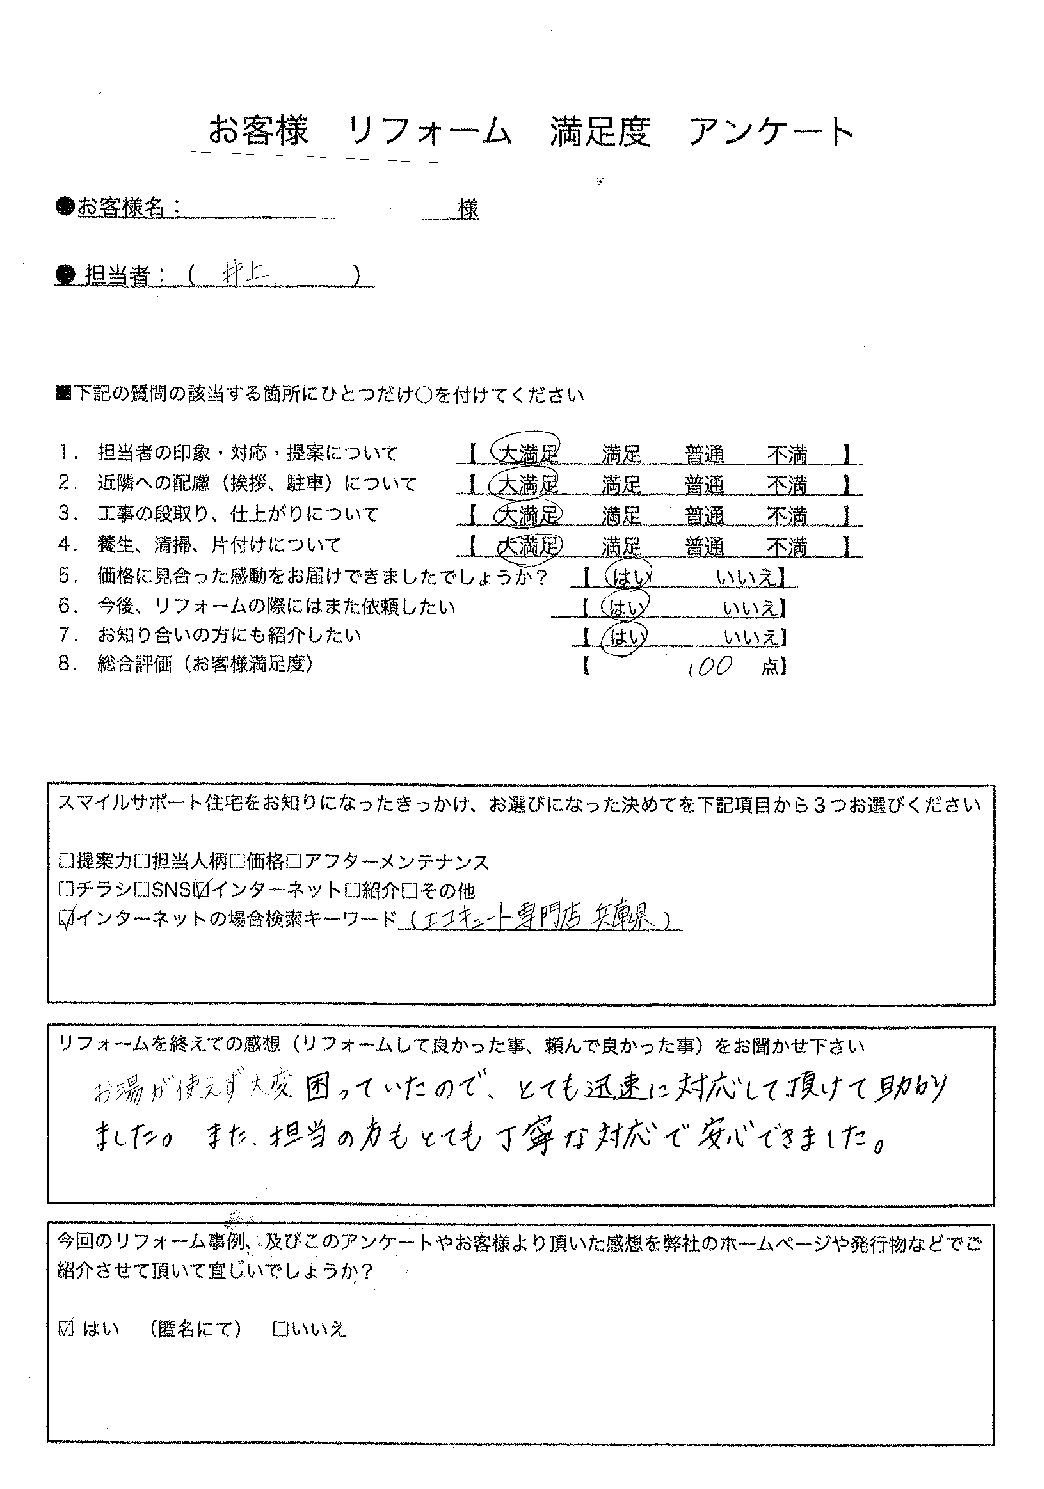 お客様　リフォーム　満足度　アンケート
●お客様名：　　　　　　様
●担当者：（　井上　　　）
■下記の質問の該当する箇所にひとつだけ○を付けてください
1．担当者の印象・対応・提案について　【　大満足　満足　普通　不満　】
2．近隣への配慮（挨拶、駐車）について　【　大満足　満足　普通　不満　】
3．工事の段取り、仕上がりについて　【　大満足　満足　普通　不満　】
4．養生、清掃、片付けについて　【　大満足　満足　普通　不満　】
5．価格に見合った感動をお届けできましたでしょうか？　【　はい　いいえ】
6．今後、リフォームの際にはまた依頼したい　【　はい　いいえ】
7．お知り合いの方にも紹介したい　【　はい　いいえ】
8．総合評価（お客様満足度）　【　100　点】
スマイルサポート住宅をお知りになったきっかけ、お選びになった決めてを下記項目から３つお選びください
□提案力□担当人柄□価格□アフターメンテナンス
□チラシ□SNS☑インターネット□紹介□その他
☑インターネットの場合検索キーワード（エコキュート専門店 兵庫県）
リフォームを終えての感想（リフォームして良かった事、頼んで良かった事）をお聞かせ下さい
お湯が使えず大変困っていたので、とても迅速に対応して頂けて助かり
ました。また、担当の方もとても丁寧な対応で安心できました。
今回のリフォーム事例、及びこのアンケートやお客様より頂いた感想を弊社のホームページや発行物などでご
紹介させて頂いて宜しいでしょうか？
☑はい　（匿名にて）　□いいえ